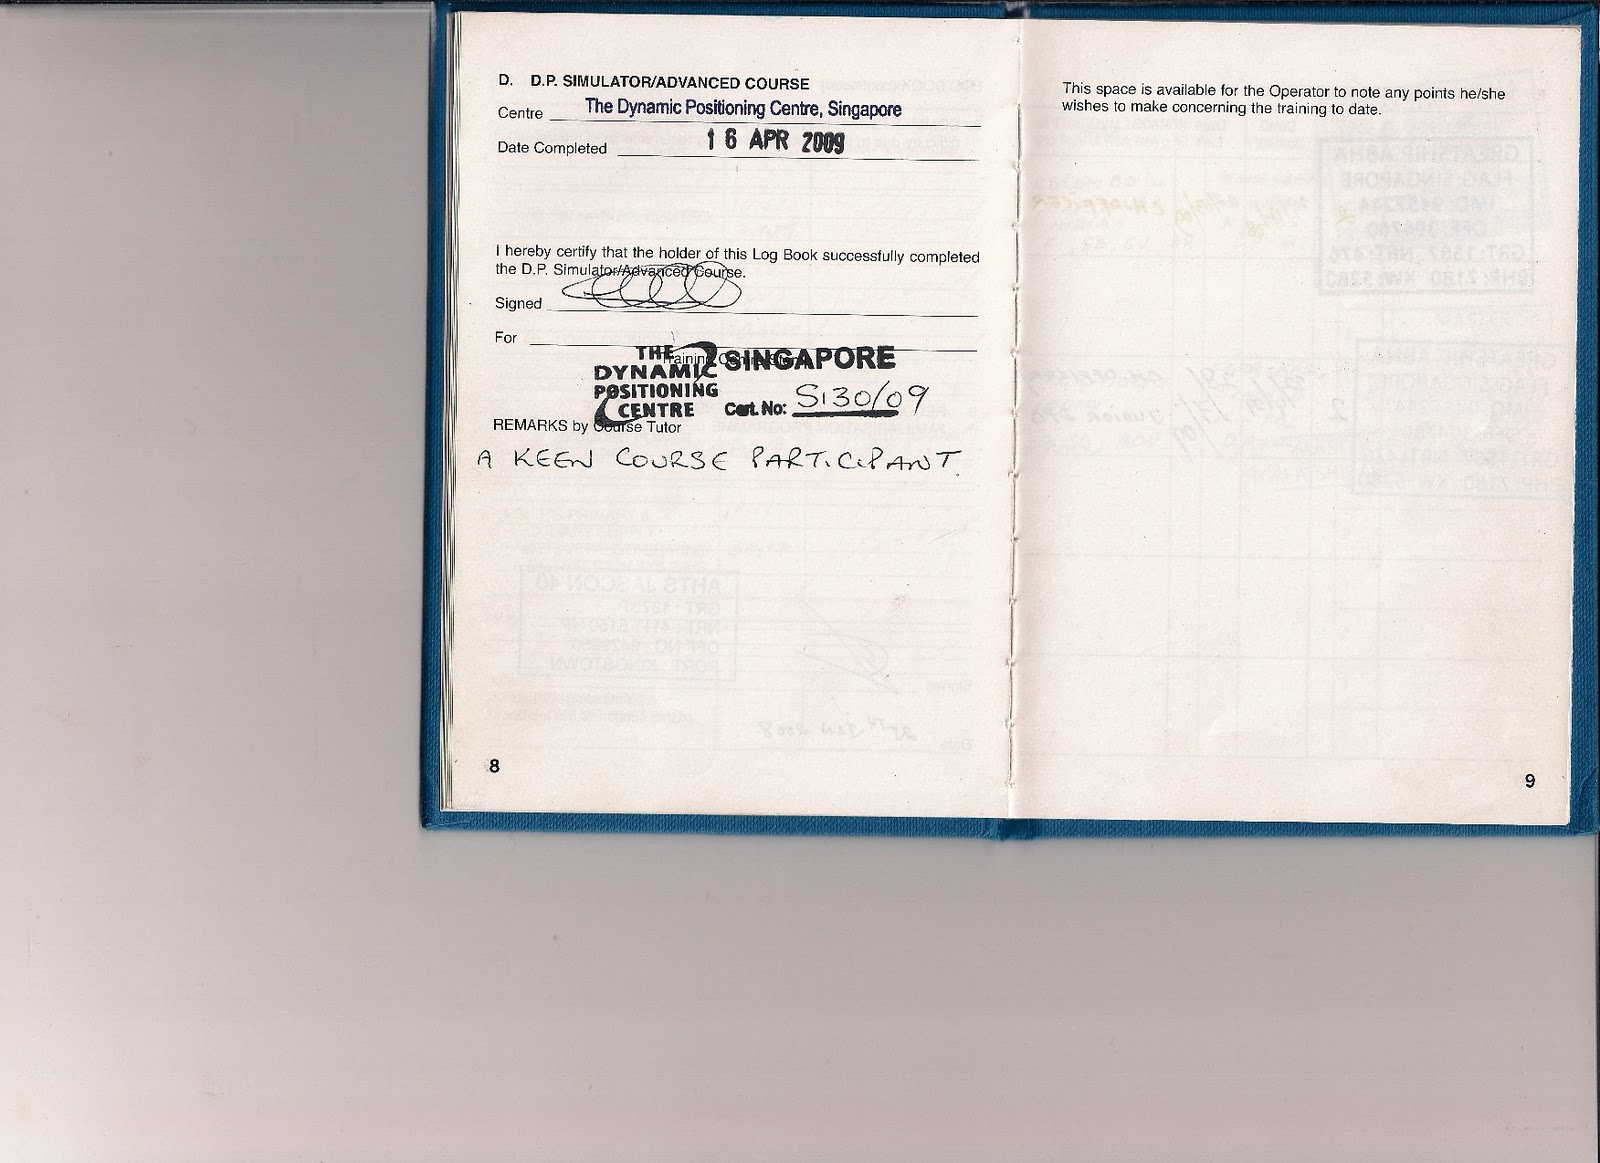 D. D.P. SIMULATOR/ADVANCED COURSE
Centre The Dynamic Positioning Centre, Singapore
Date Completed 16 APR 2009
I hereby certify that the holder of this Log Book successfully completed
the D.P. Simulator/Advanced Course.
Signed
For
Training Centre
THE DYNAMIC POSITIONING CENTRE
SINGAPORE
Cert. No: S130/09
REMARKS by Course Tutor
A KEEN COURSE PARTICIPANT.
8
This space is available for the Operator to note any points he/she
wishes to make concerning the training to date.
9